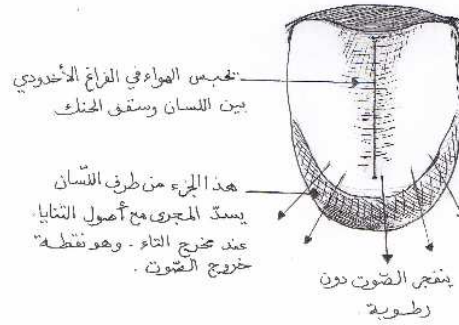 يحبس الهواء في الفراغ الأخدودي
بين اللسان وسقف الحنك
هذا الجزء من طرف اللسان
يسدّ المجرى مع أصول الثنايا.
عند مخرج التاء. وهو نقطة
خروج الصّوت.
ينفجر الصّوت دون
رطوبة.